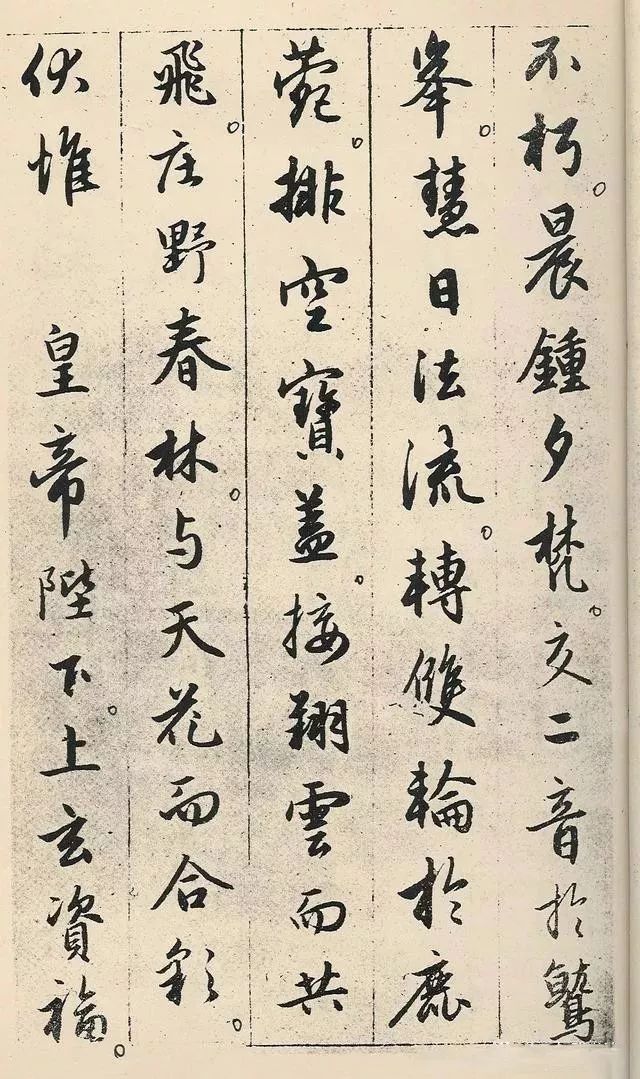 不朽。晨鍾夕梵。交二音於鷲
峯。慧日法流。轉雙輪於鹿
菀。排空寶蓋。接翔雲而共
飛。庄野春林。与天花而合彩。
伏惟 皇帝陛下。上玄資福。